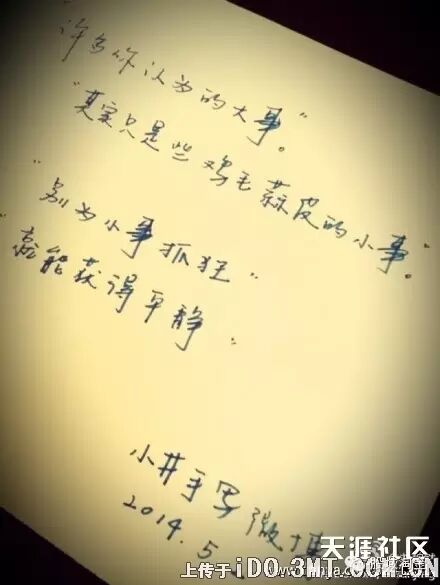 "许多你认为的大事。"
"其实只是些鸡毛蒜皮的小事。"
"别为小事抓狂"
"就能获得平静"
小井手男 微博
2014.5
天涯社区
上传于 iDO.3MT.COM.CN